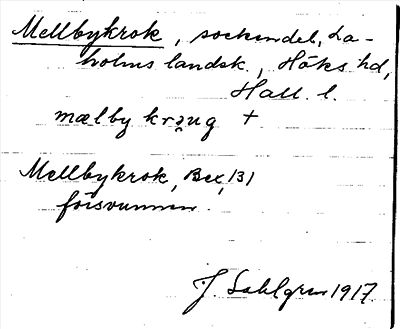 Mellbykrok, sockendel, La-
holms landsk., Höks hd,
Hall. l.
mælby krəug +
Mellbykrok, Bex, 131
försvunnen.
J. Sahlgren 1917.